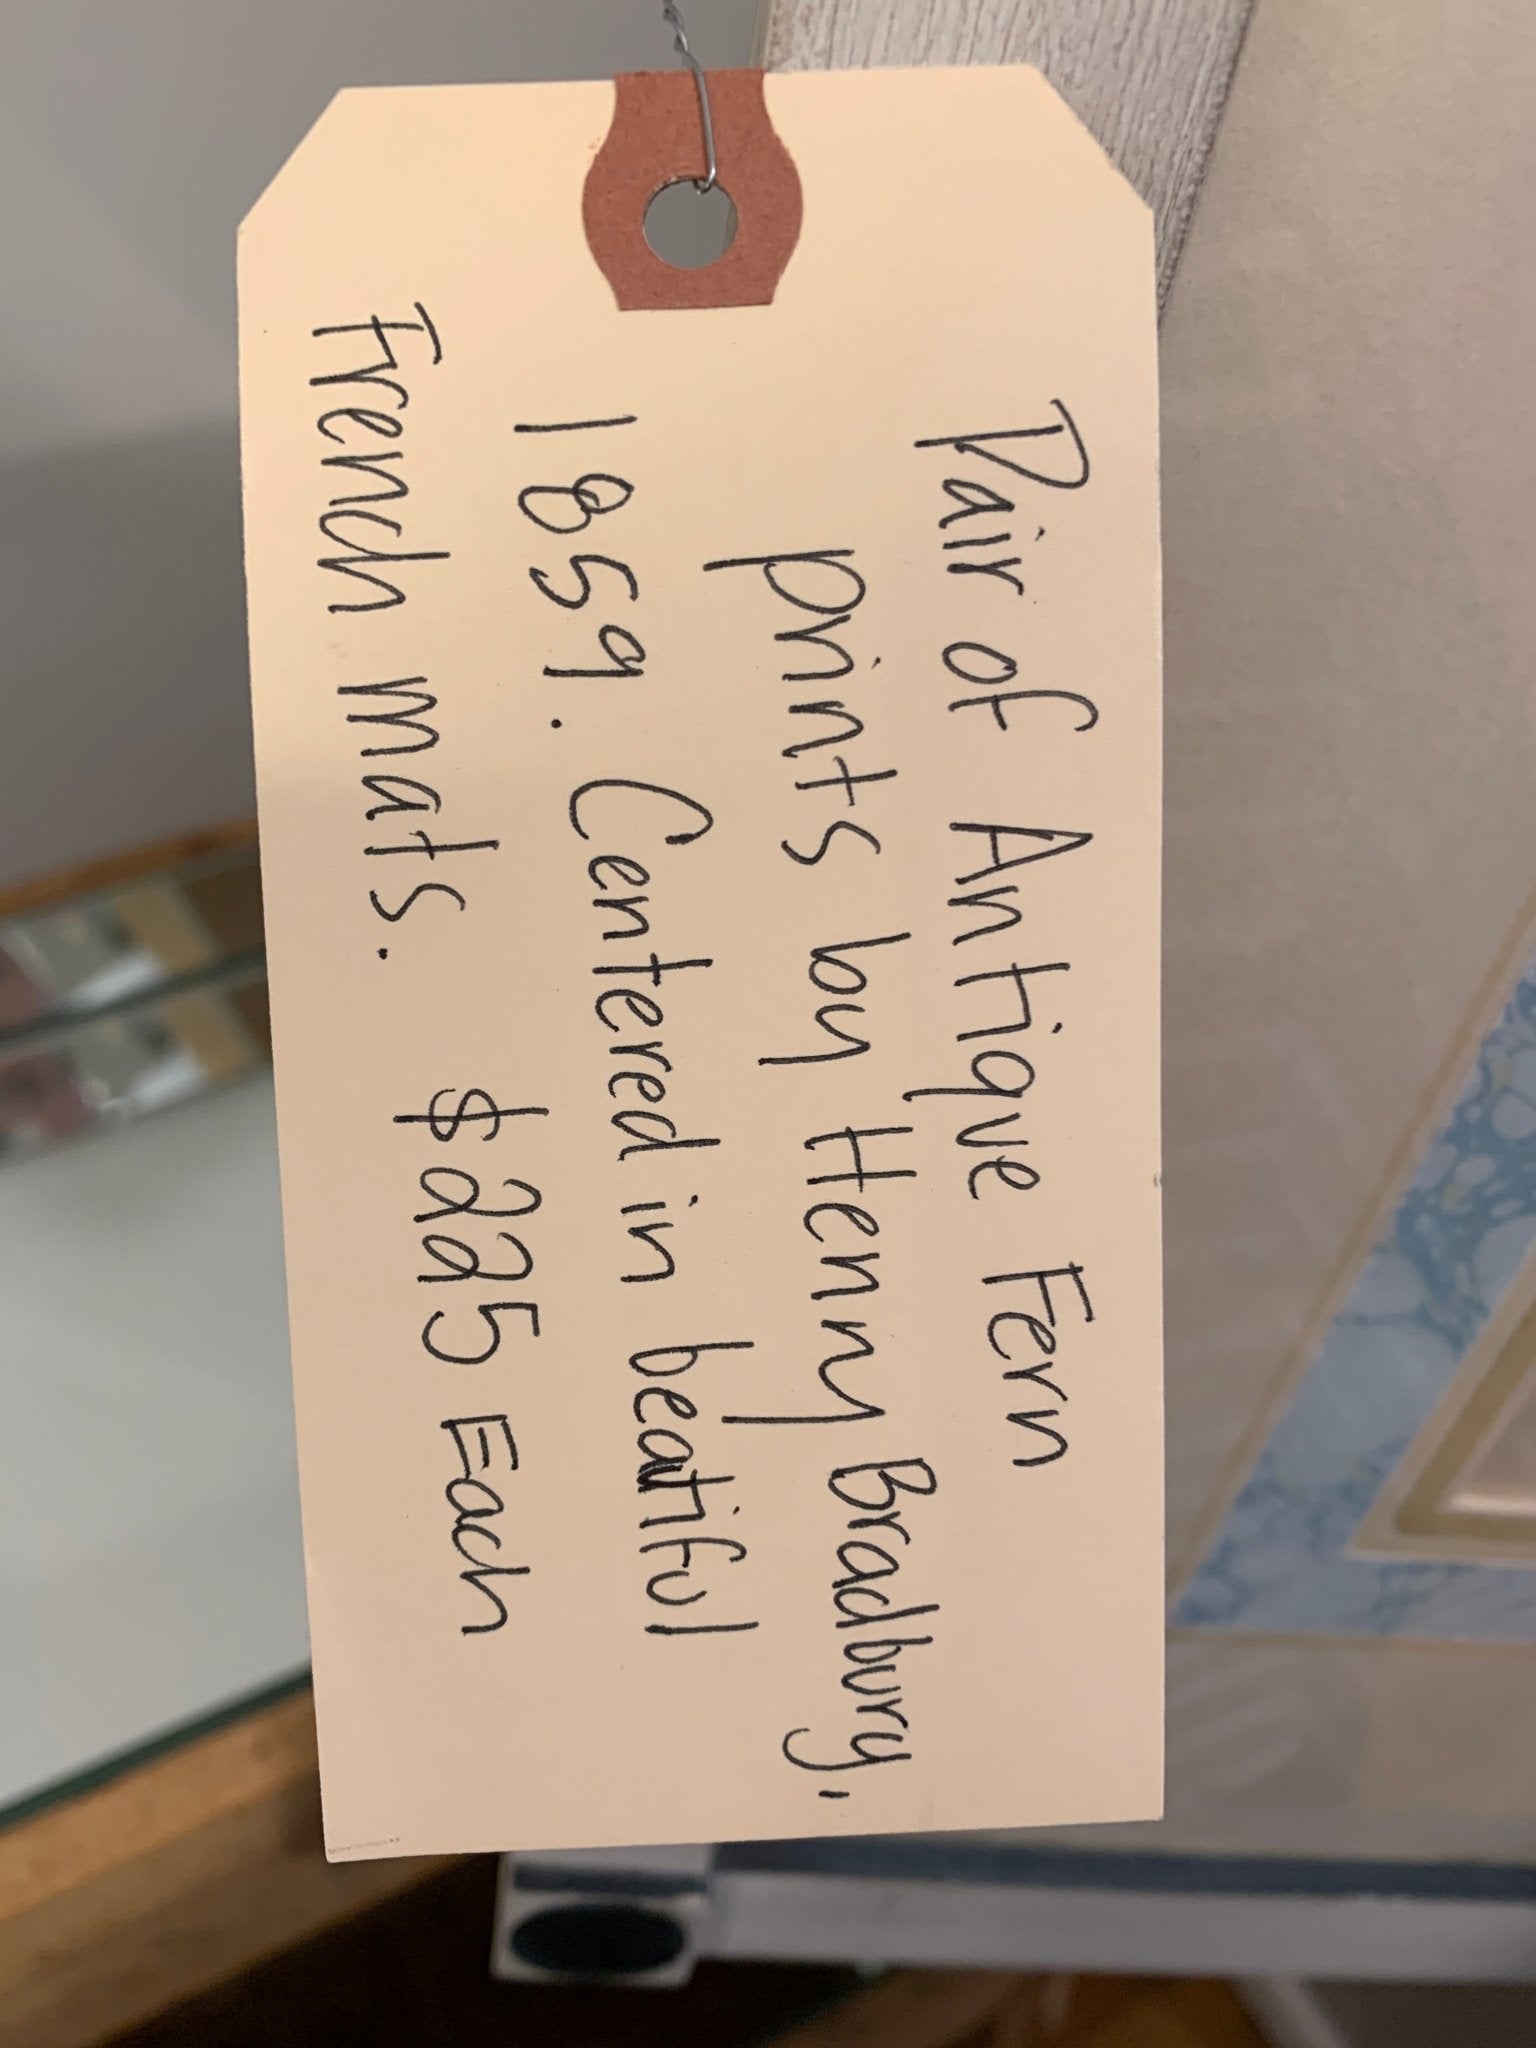 Pair of Antique Fern
prints by Henry Bradbury,
1859. Centered in beatiful
French mats. $225 Each